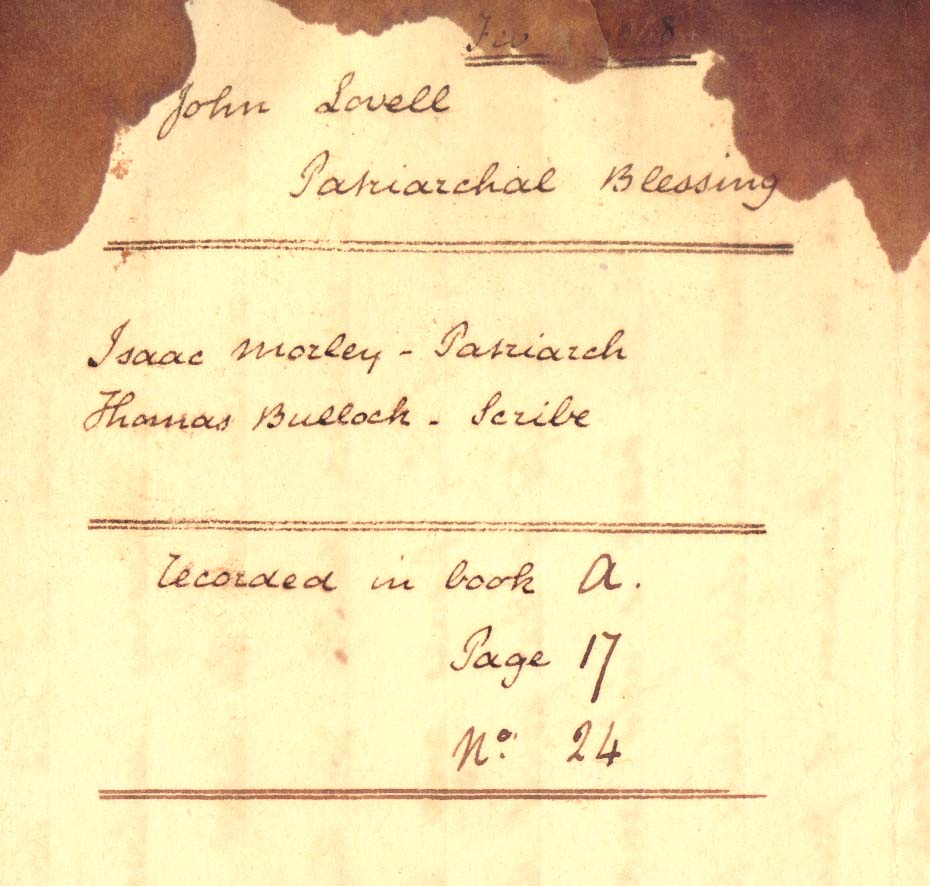 John Lovell
Patriarchal Blessing
Isaac Morley - Patriarch
Thomas Bullock - Scribe
recorded in book A.
Page 17
No. 24